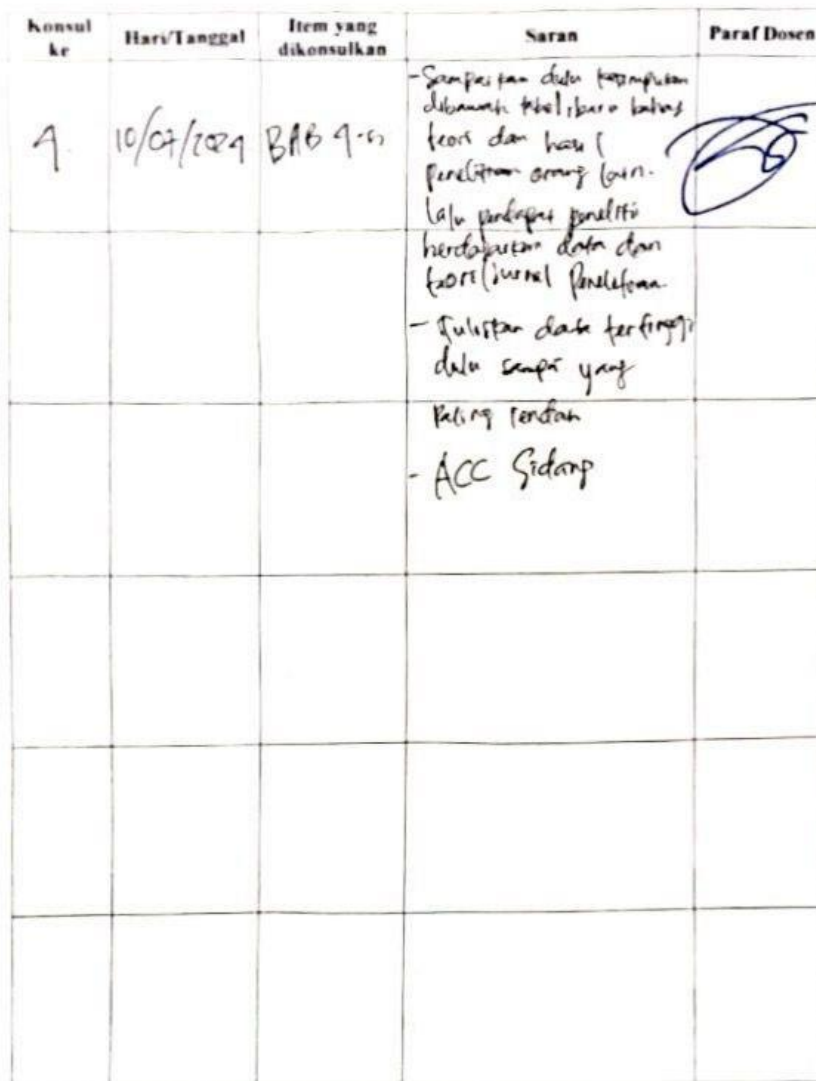 Konsul ke
Hari/Tanggal
Item yang dikonsulkan
Saran
Paraf Dosen
4.
10/07/2024
BAB 4-
- Sampaikan dulu kesimpulan
dibawah tabel, baru bahas
teori dan hasil
penelitian orang lain.
lalu pendapat peneliti
berdasarkan data dan
teori/jurnal penelitian.
- Tuliskan data tertinggi
dulu sampai yang
paling rendah
- ACC Sidang